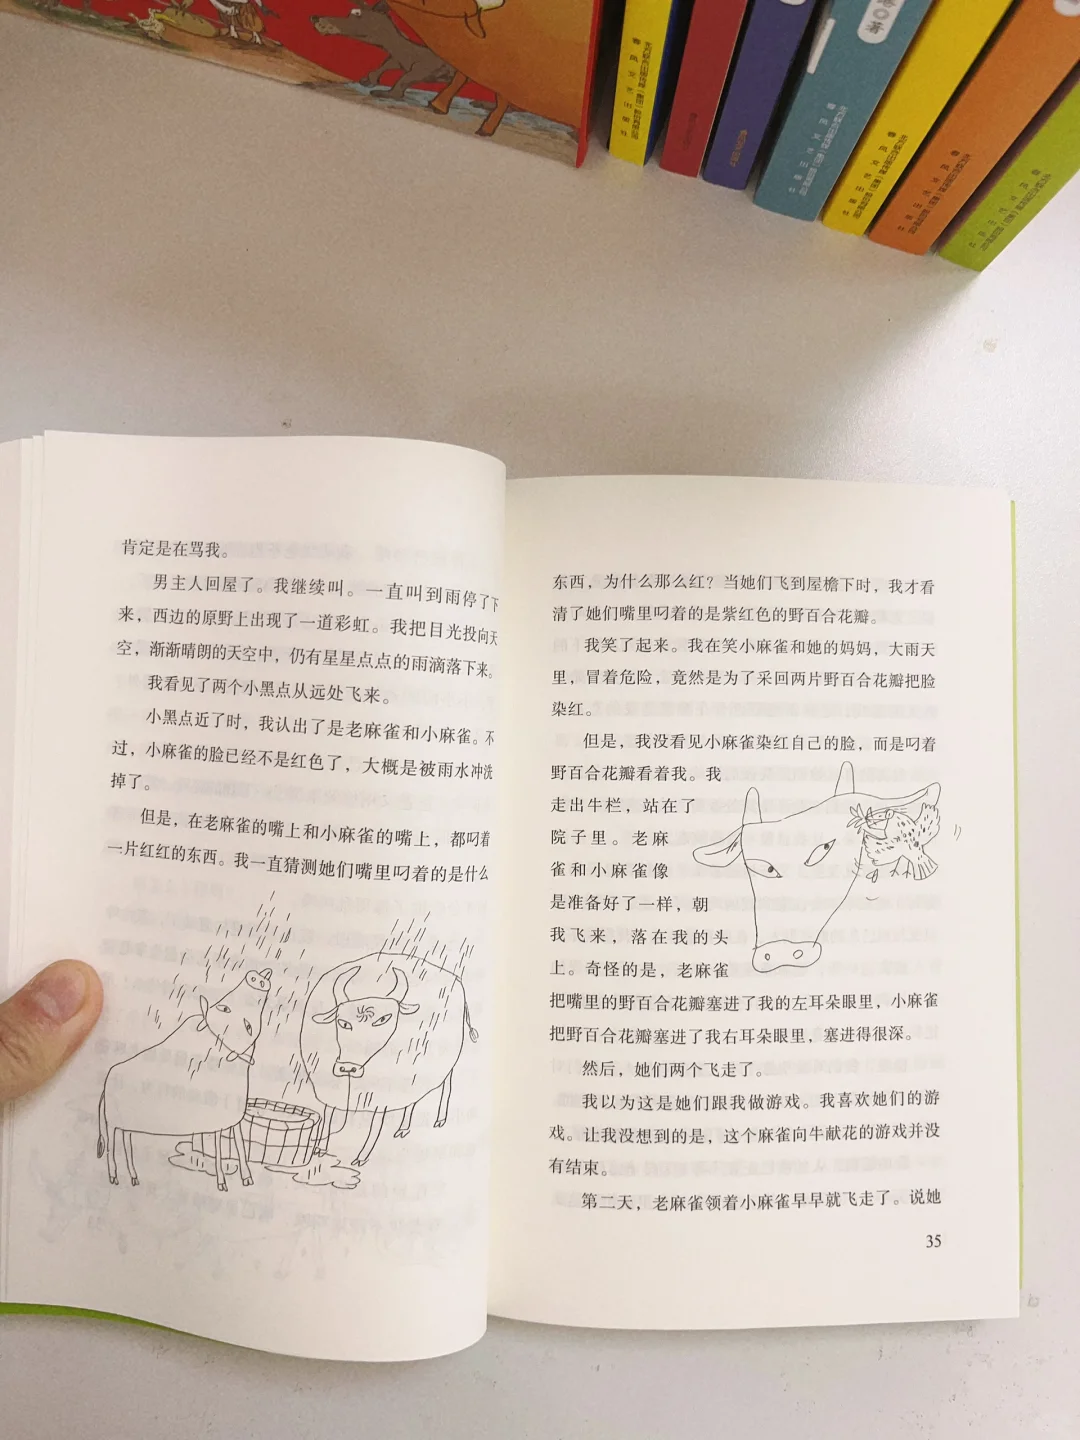 著
春风文艺出版社
春风文艺出版社
春风文艺出版社
春风文艺出版社
春风文艺出版社
肯定是在骂我。
男主人回屋了。我继续叫。一直叫到雨停了下
来，西边的原野上出现了一道彩虹。我把目光投向天
空，渐渐晴朗的天空中，仍有星星点点的雨滴落下来。
我看见了两个小黑点从远处飞来。
小黑点近了时，我认出了是老麻雀和小麻雀。不
过，小麻雀的脸已经不是红色了，大概是被雨水冲洗
掉了。
但是，在老麻雀的嘴上和小麻雀的嘴上，都叼着
一片红红的东西。我一直猜测她们嘴里叼着的是什么
东西，为什么那么红？当她们飞到屋檐下时，我才看
清了她们嘴里叼着的是紫红色的野百合花瓣。
我笑了起来。我在笑小麻雀和她的妈妈，大雨天
里，冒着危险，竟然是为了采回两片野百合花瓣把脸
染红。
但是，我没看见小麻雀染红自己的脸，而是叼着
野百合花瓣看着我。我
走出牛栏，站在了
院子里。老麻
雀和小麻雀像
是准备好了一样，朝
我飞来，落在我的头
上。奇怪的是，老麻雀
把嘴里的野百合花瓣塞进了我的左耳朵眼里，小麻雀
把野百合花瓣塞进了我右耳朵眼里，塞进得很深。
然后，她们两个飞走了。
我以为这是她们跟我做游戏。我喜欢她们的游
戏。让我没想到的是，这个麻雀向牛献花的游戏并没
有结束。
第二天，老麻雀领着小麻雀早早就飞走了。说她
35